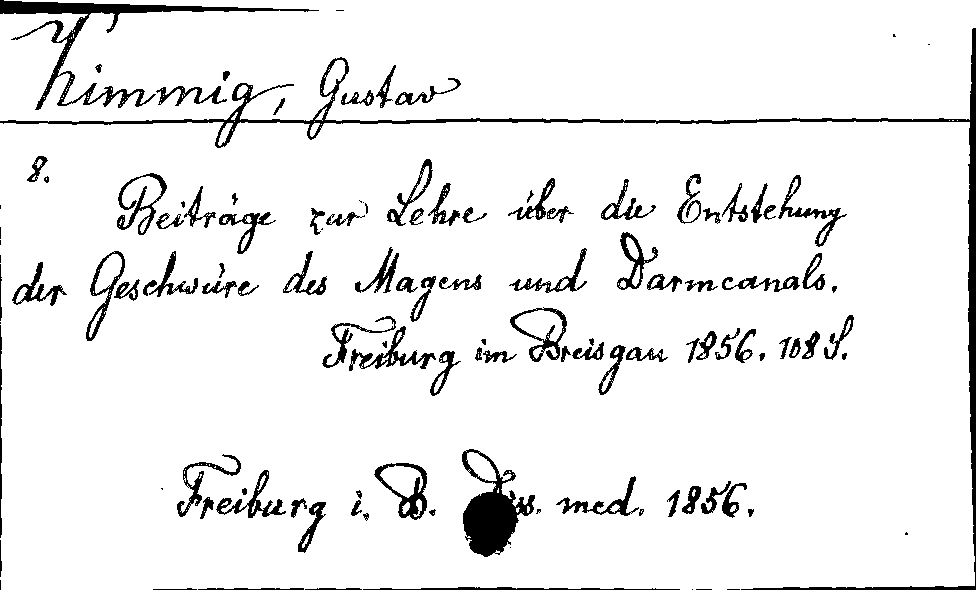 Kimmig, Gustav
8.
Beiträge zur Lehre über die Entstehung
der Geschwüre des Magens und Darmcanals.
Freiburg im Breisgau 1856. 108 S.
Freiburg i. B. Diss. med. 1856.